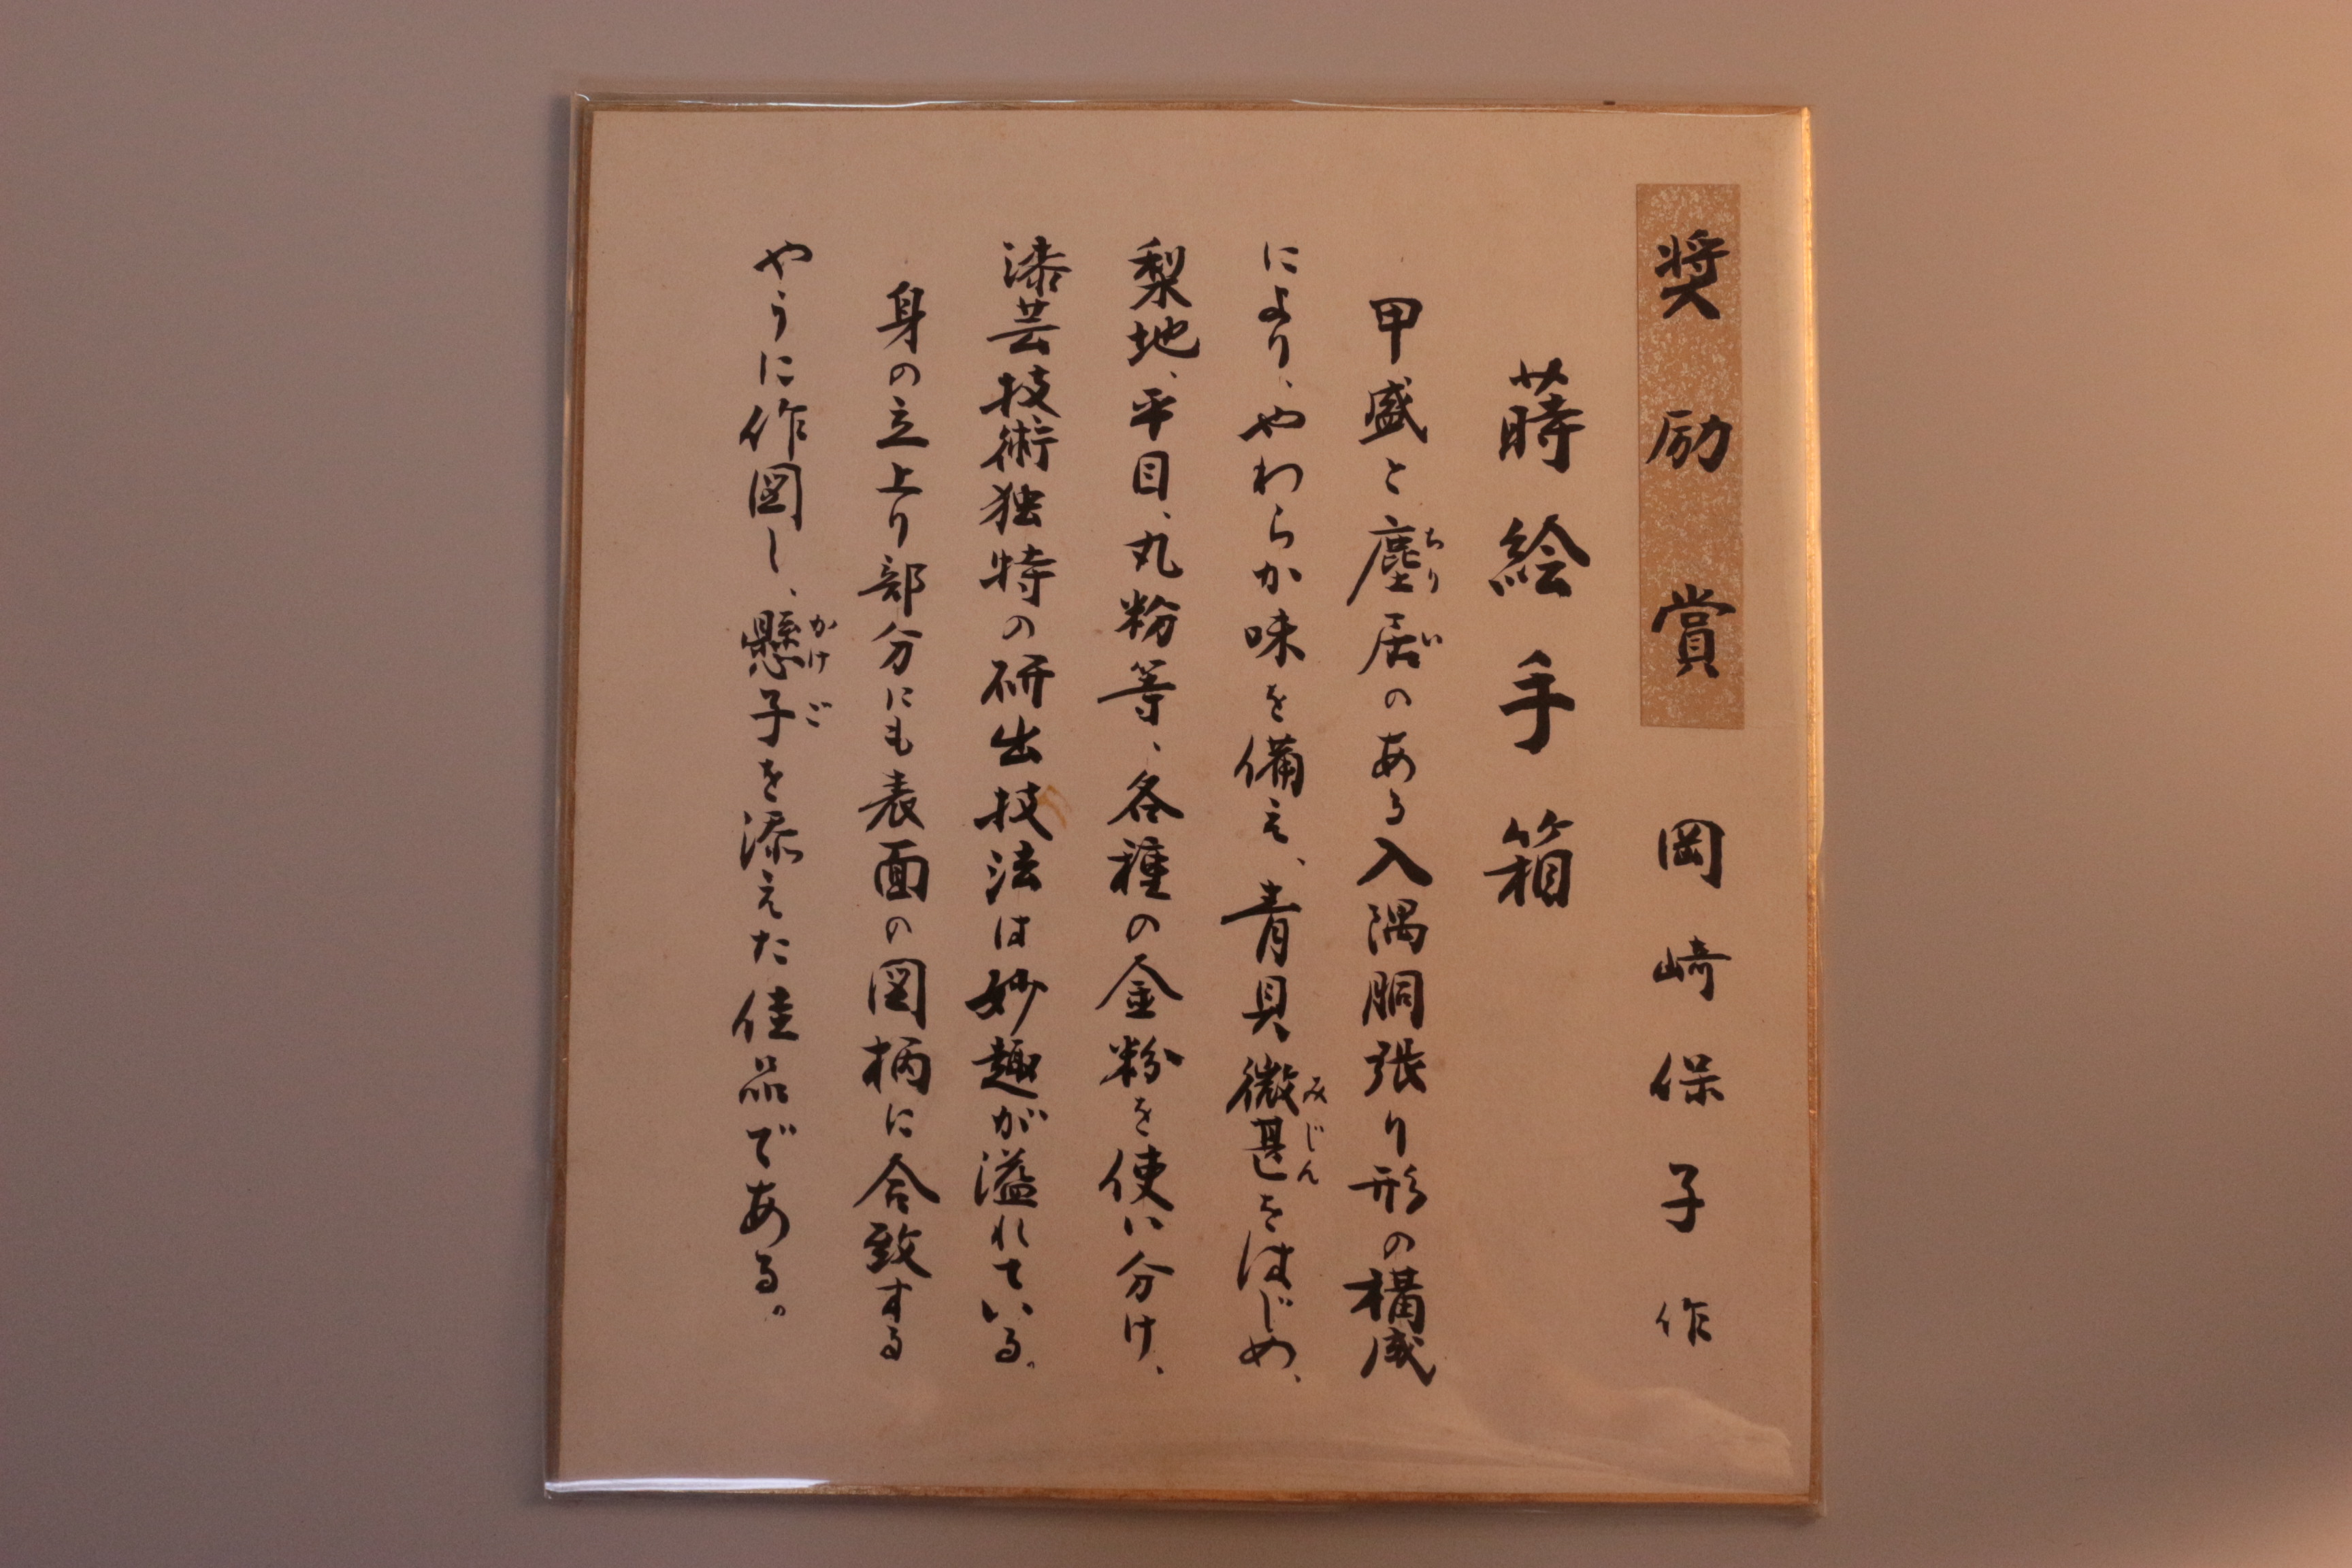 奨励賞 岡崎保子作
蒔絵手箱
甲盛と塵居のある入隅胴張り形の構成
ちりい
により、やわらか味を備え、青貝微甚をはじめ、
みじん
梨地、平目、丸粉等、各種の金粉を使い分け、
漆芸技術独特の研出技法は妙趣が溢れている。
身の立上り部分にも表面の図柄に合致する
やうに作図し、懸子を添えた佳品である。
かけご